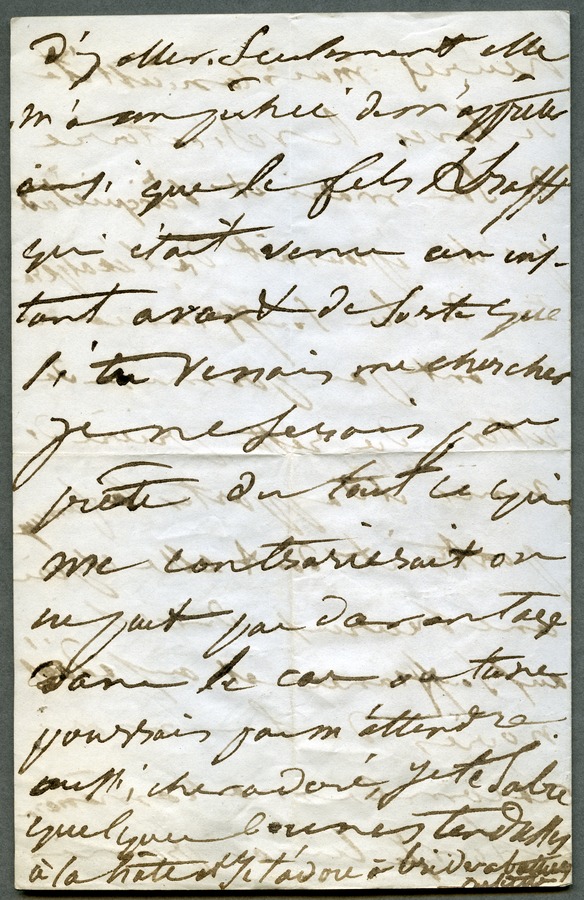 d'y aller. Seulement elle
m'a empêchée de m'apprêter
ainsi que le fils
qui était venu un ins-
tant avant de sorte que
si tu venais me chercher
je ne serais pas
prête du tout ce qui
me contrarierait on
ne peut pas davantage
dans le cas où tu ne
pourrais pas m'attendre.
aussi, cher adoré, je te
quelques
à la hâte et je t'adore à